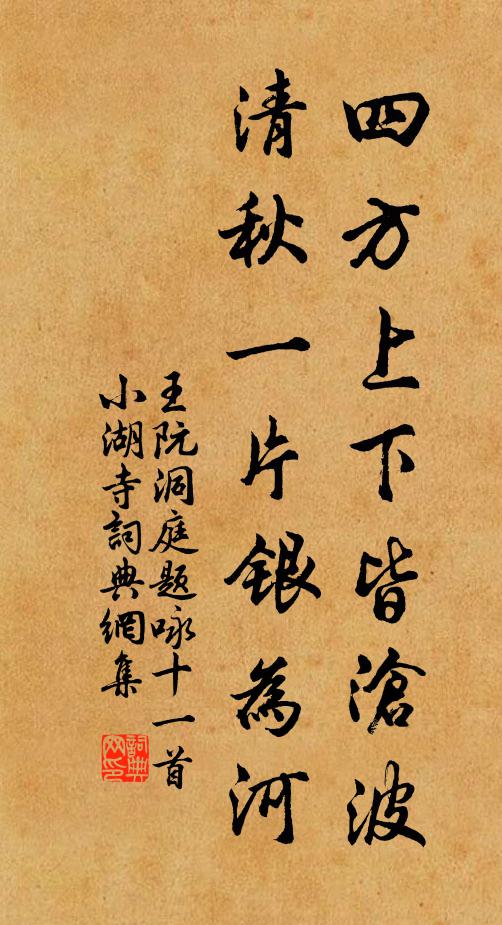 四方上下皆滄波
清秋一片銀為河
王阮洞庭題咏十一首
小湖寺詞典網集
詞典
网印